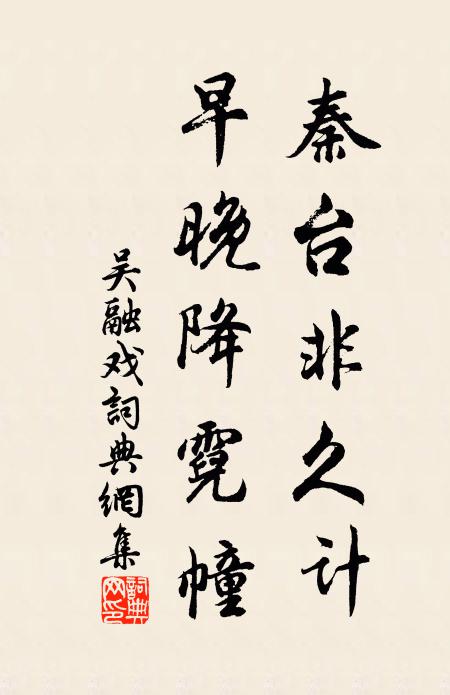 秦台非久计
早晚降霓幢
吴融戏詞典網集
詞典网印